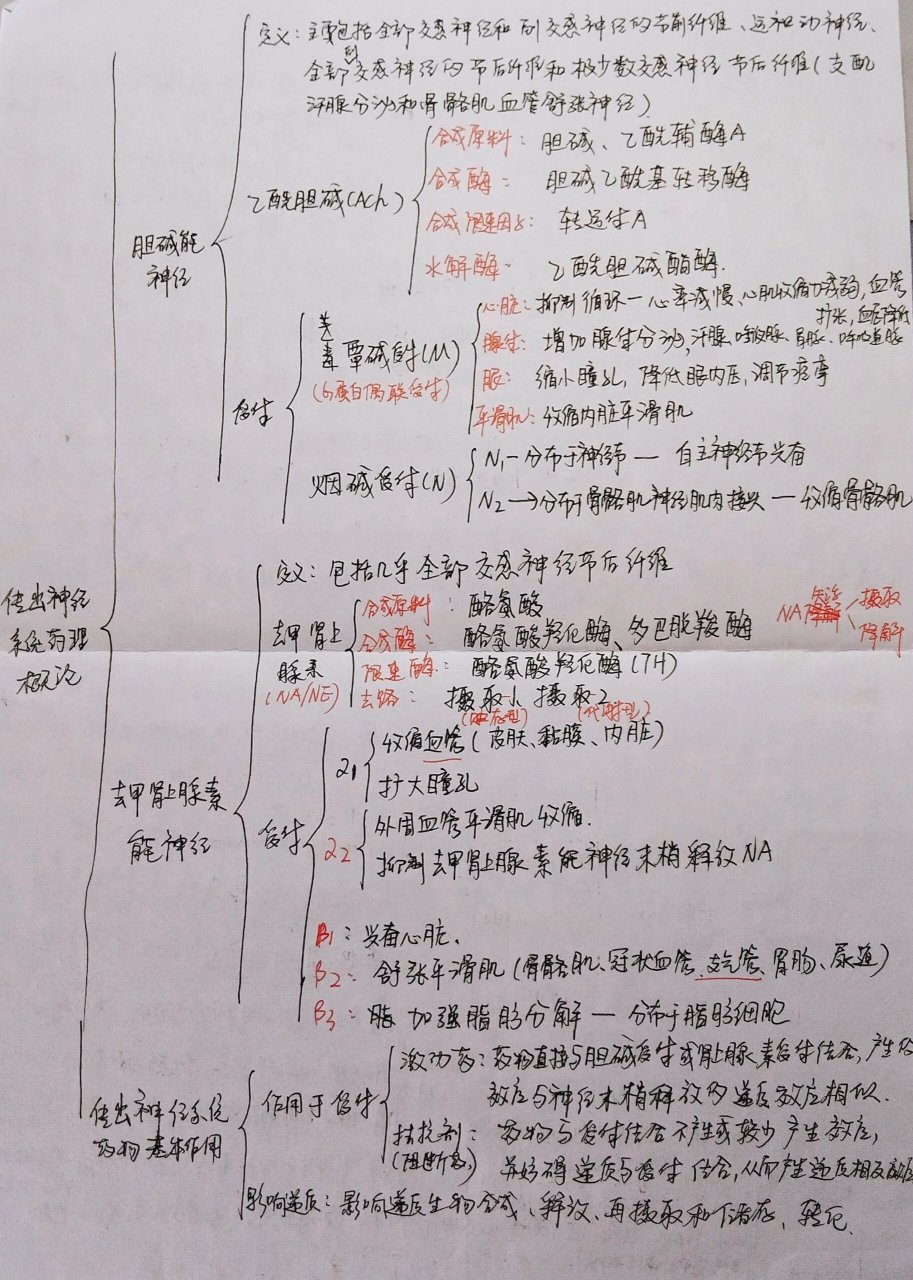 定义：主要包括全部交感神经和副交感神经的节前纤维、运动神经、
全部副交感神经的节后纤维和极少数交感神经节后纤维(支配
汗腺分泌和骨骼肌血管舒张神经)
合成原料：胆碱、乙酰辅酶A
合成酶：胆碱乙酰基转移酶
乙酰胆碱(ACh)
合成限速因子：转运体A
水解酶：乙酰胆碱酯酶.
胆碱能
神经
心脏：抑制循环—心率减慢、心肌收缩力减弱,血管
扩张,血压降低
腺体：增加腺体分泌,汗腺、唾液腺、胃肠、呼吸道腺
毒蕈碱受体(M)
(G蛋白偶联受体)
眼：缩小瞳孔,降低眼内压,调节痉挛
平滑肌：收缩内脏平滑肌
受体
烟碱受体(N)
N₁—分布于神经节—自主神经节兴奋
N₂→分布于骨骼肌神经肌肉接头—收缩骨骼肌
传出神经
系统药理
概论
定义：包括几乎全部交感神经节后纤维
去甲肾上
腺素
(NA/NE)
合成原料：酪氨酸
合成酶：酪氨酸羟化酶、多巴脱羧酶
限速酶：酪氨酸羟化酶(TH)
去路：摄取-1、摄取-2
(贮存型) (代谢型)
NA失活
摄取
降解
去甲肾上腺素
能神经
受体
α₁
收缩血管(皮肤、黏膜、内脏)
扩大瞳孔
α₂
外周血管平滑肌收缩.
抑制去甲肾上腺素能神经末梢释放NA
β₁：兴奋心脏.
β₂：舒张平滑肌(骨骼肌、冠状血管、支气管、胃肠、尿道)
β₃：脂 加强脂肪分解—分布于脂肪细胞
传出神经系统
药物基本作用
作用于受体
激动药：药物直接与胆碱受体或肾上腺素受体结合,产生的
效应与神经末梢释放的递质效应相似.
拮抗剂：药物与受体结合不产生或较少产生效应,
(阻断药)
并妨碍递质与受体结合,从而产生递质相反
影响递质：影响递质生物合成、释放、再摄取和储存、转化.